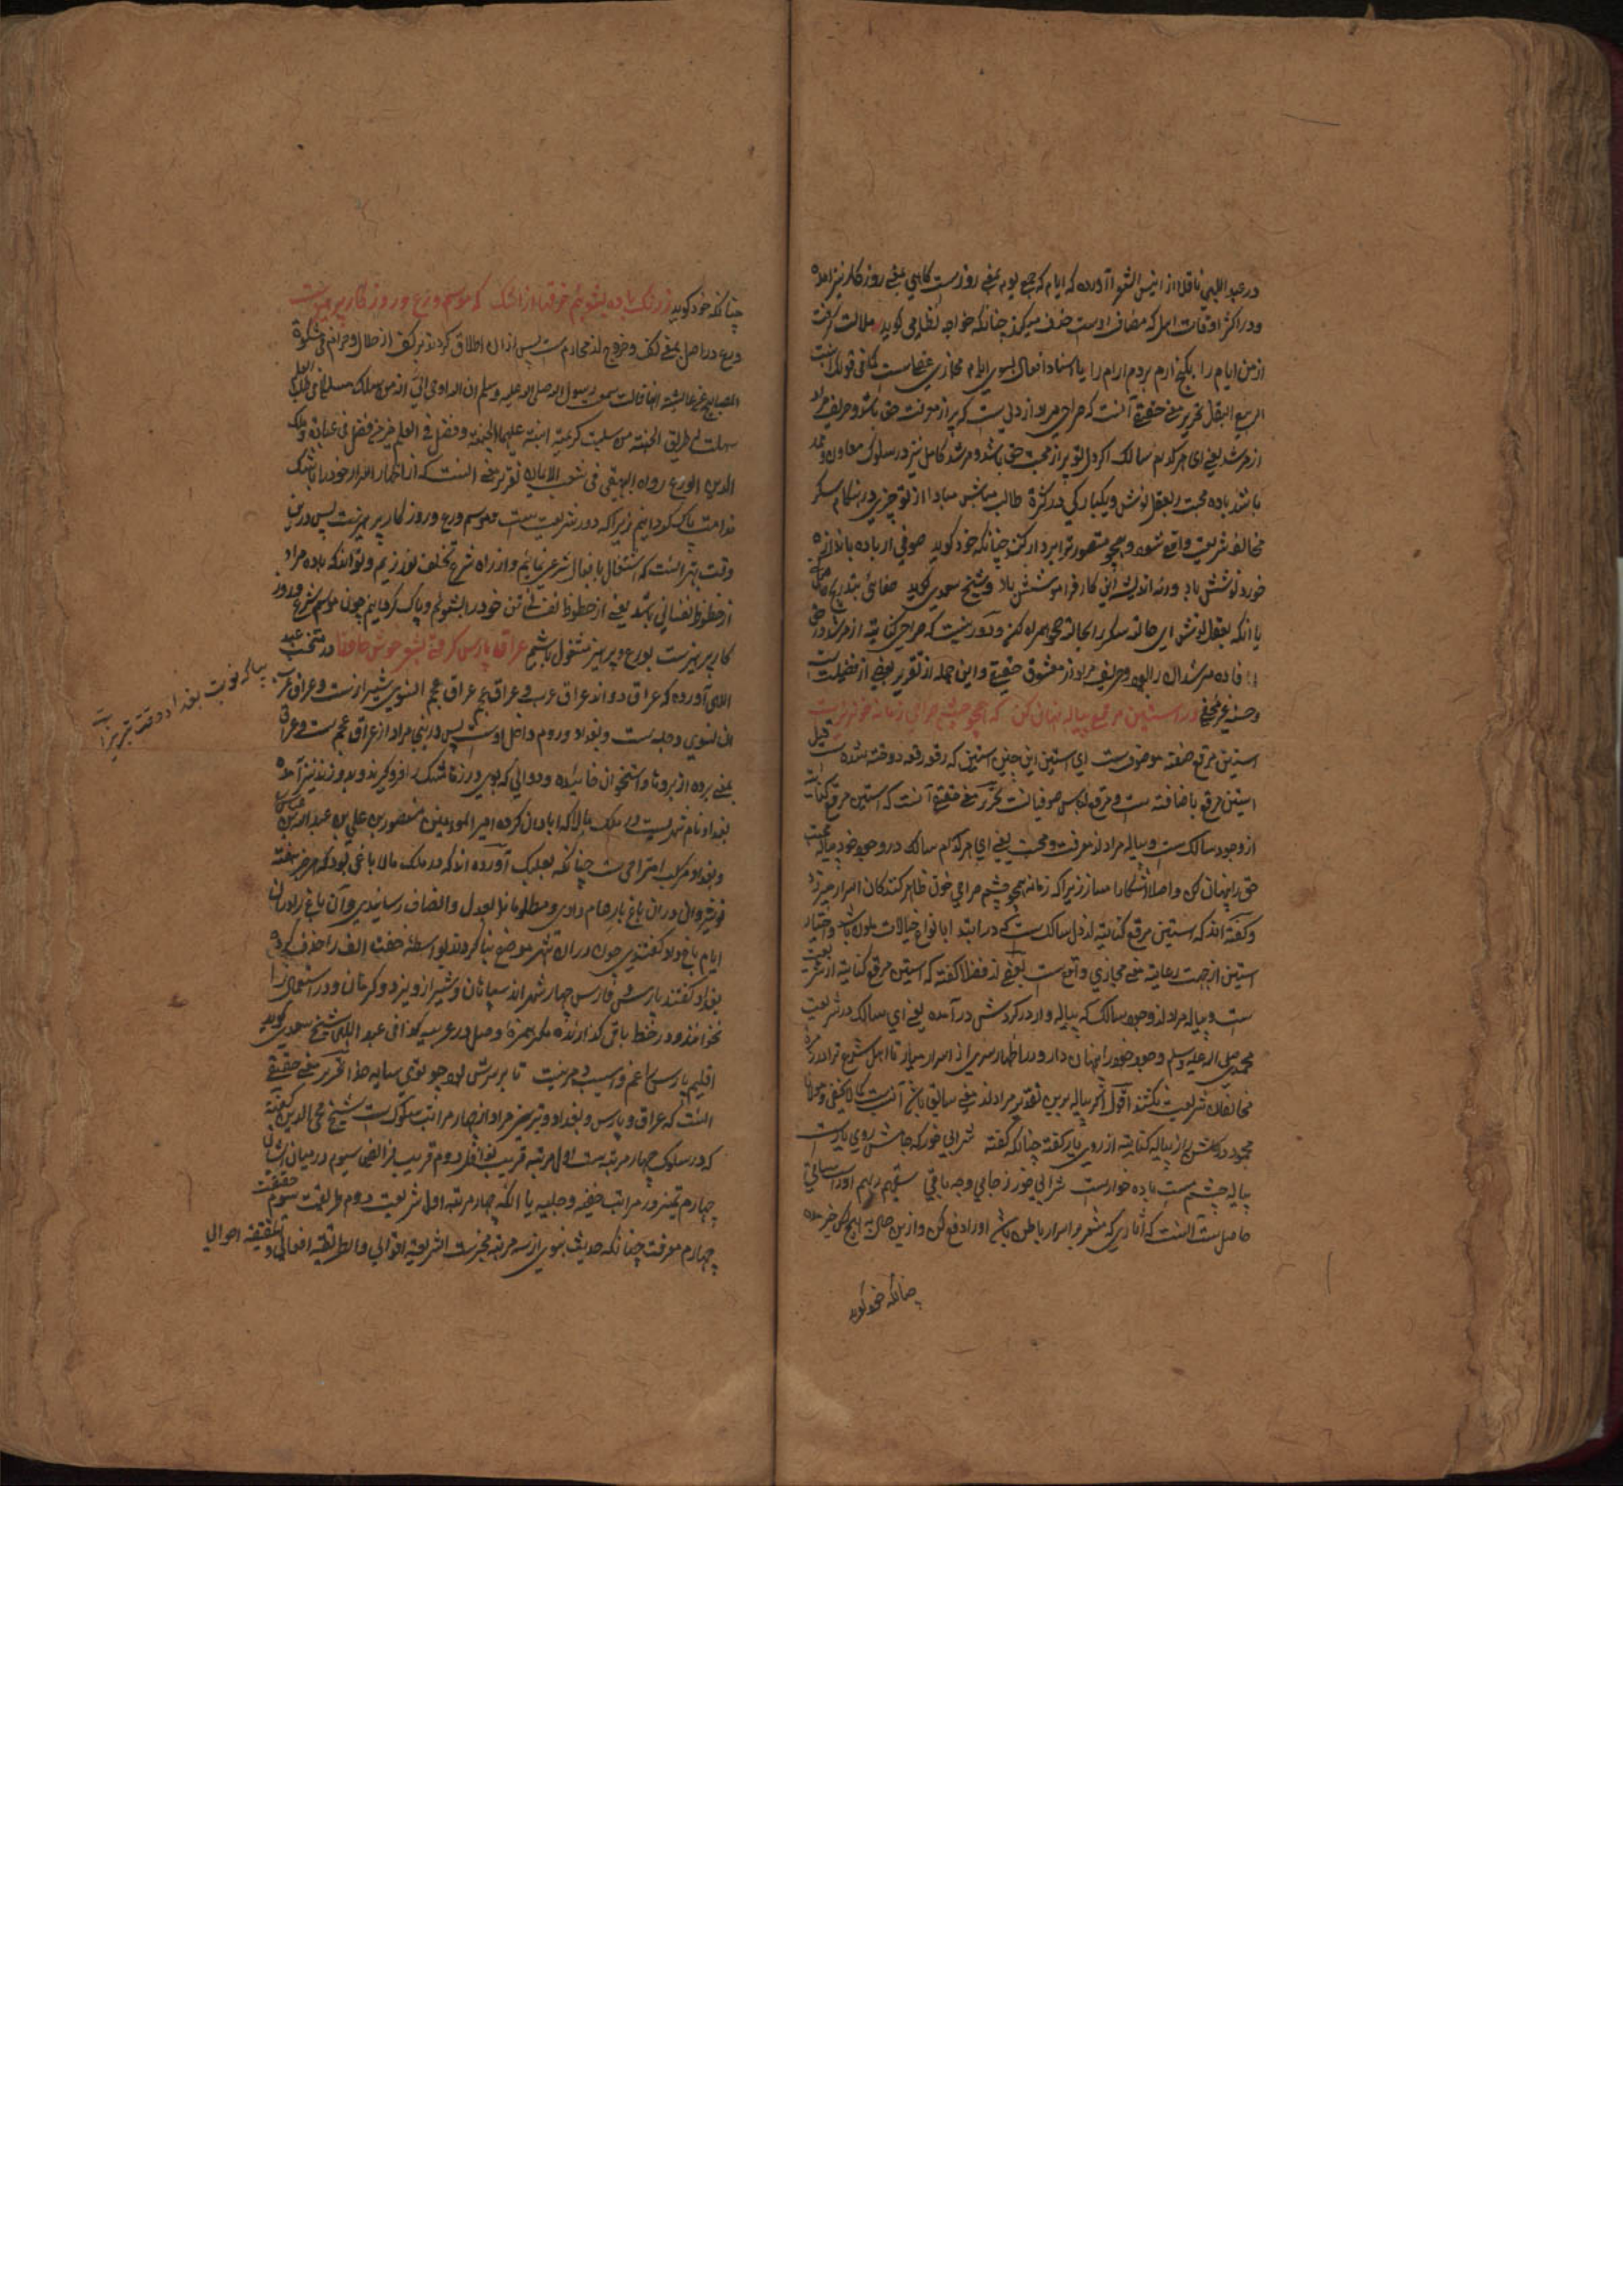 در عبد اللهی ناقلا از انیس الشعرا آورده که ایام که جمع یوم بمعنی روزست کاهی بمعنی روزکار نیز آمده
ودر اکثر اوقات اهل که مضاف اوست حذف میکنند چنانکه خواجه نظامی کوید ملالت کرفت
از من ایام را بکنج ارم بردم ارام را یا اسناد افعال بسوی ایام مجازی عقلی است کما فی قولک انبت
الربیع البقل تحریر معنی حقیقی آنست که صراحی مراد از دلی ست که پر از معرفت حق باشد وحریف مراد
از مرشد یعنی ای هرکدام سالک اکر دل تو پر از محبت حق باشد و مرشد کامل نیز در سلوک معاون و ممد
باشد باده محبت بعقل نوش ویکبارکی در کثرة طالب مباش مبادا از تو چیزی در هنکام سکر
مخالف شریعت واقع شود وهمچو منصور ترا بردار کنند چنانکه خود کوید صوفی ار باده باندازه
خورد نوشش باد ورنه اندیشه این کار فراموشش باد وشیخ سعدی کوید صفائی بتدریج حاصل کنی
یا آنکه بعقل نوش این حالت سکر را بحالت صحو همراه کن و دور نیست که صراحی کنایه از مرشد
افاده مرشدان را بود وحریف مراد از معشوق حقیقی واین جمله از تقریر بعضی از فضیلت
در استین مرقع پیاله پنهان کن که همچو چشم صراحی زمانه خونریزست
استین مرقع صفة موصوفست ای استین این چنین استین که رقعه رقعه دوخته شده ست قیل
استین مرقع باضافته ست و مرقع لباس صوفیانست تحریر معنی حقیقی آنست که استین مرقع کنایت
از وجود سالک ست و پیاله مراد از معرفت و محبت یعنی ای هرکدام سالک در وجود خود پیاله محبت
حق را پنهان کن و اصلا آشکارا مساز زیرا که زمانه همچو چشم صراحی خون ظاهر کنندکان اسرار میریزد
وکفته اند که استین مرقع کنایته از دل سالک ست که در ابتدا بانواع خیالات ملون باشد واختیار
استین از جهت رعایة معنی مجازی واقع ست بعضی از فضلا کفته که استین مرقع کنایته از شریعت
ست و پیاله مراد از وجود سالک که پیاله وار در کردش در آمده یعنی ای سالک در شریعت
محمدی صلی الله علیه وسلم وجود خود را پنهان دار و در اظهار سری از اسرار میاز تا اهل شرع ترا در زمره
مخالفان شریعت نکشند اقول اکر پیاله برین تقدیر مراد از معنی سابق باشد آنست کما لا یخفی ومولانا
محمود در کلشن راز پیاله کنایته از روی یار کفته چنانکه کفته شرابی خور که جامش روی یارست
پیاله چشم مست باده خوارست شرابی خور ز جام وجه باقی سقیهم ربهم او راست ساقی
حاصلست آنست که آثاری که مشعر بر اسرار باطن باشد او را دفع کن وازین حال به هیچ کس خبر مده
چنانکه خود کوید
چنانکه خود کوید ز رنک باده بشوئیم خرقها از اشک که موسم ورع و روزکار پرهیزست
ورع در اصل بمعنی کف و خروج از محارم ست پس از ان اطلاق کردند بر کف از حلال و حرام فی مشکوة
المصابیح عن عایشة انها قالت سمعت رسول الله صلی الله علیه وسلم ان الله اوحی الی انه من سلک مسلکا فی طلب العلم
سهلت له طریق الجنة ومن سلبت کریمتیه اثبته علیهما الجنة وفضل فی العلم خیر من فضل فی عبادة وملاک
الدین الورع رواه البیهقی فی شعب الایمان تقریر معنی آنست که از اظهار اسرار خود را باشک
ندامت پاک کردانیم زیرا که دور شریعت ست وموسم ورع و روزکار پرهیزست پس درین
وقت بهتر آنست که اشتغال بافعال شرعی نمائیم و از راه شرع تخلف نورزیم وتواند که باده مراد
از حظوظ نفسانی باشد یعنی از حظوظ نفسانی تن خود را بشوئیم و پاک کردانیم چون موسم شرع و روز
کار پرهیزست بورع و پرهیز مشغول باشیم عراق وپارس کرفتی بشعر خوش حافظ در منتخب عبد
بیا که نوبت بغداد و وقت تبریزست
اللهی آورده که عراق دو اند عراق عرب و عراق عجم عراق عجم آنسوی شیرازست وعراق عرب
آن سوی دجله ست و بغداد وروم داخل اوست پس درینجا مراد از عراق عجم ست وعراق
بغداد نام شهریست در ملک بالا که ابادان کرده امیر المومنین منصور بن علی بن عبد الله بن عباس
وبغداد مرکب امتزاجی ست چنانکه بعلبک آورده اند که در ملک بالا باغی بود که هر هفته
نوشیروان دران باغ بارعام دادی و مظلومانرا بعدل و انصاف رسانیدی وآن باغ را دران
ایام باغ داد کفتندی چون دران شهر موضع بنا کردند بواسطه خفت الف را حذف کرده
بغداد کفتند پارس وفارس چهار شهر اند سپاهان و شیراز و یزد و کرمان ودر استعمال را
نخوانند و در خط باقی کذارند کذا فی عبد اللهی وشیخ سعدی کوید
اقلیم پارس را غم از آسیب دهر نیست تا بر سرش بود چو توی سایه خدا تحریر معنی حقیقی
آنست که عراق و پارس و بغداد و تبریز مراد از چهار مراتب سلوک ست شیخ محی الدین کفته
که در سلوک چهار مرتبه ست اول مرتبه قریب نوافل دوم قریب فرایض سیوم در میان ایشان
چهارم تمیز در مراتب خفیه و جلیه یا آنکه چهار مرتبه اول شریعت دوم طریقت سوم حقیقت
چهارم معرفت چنانکه حدیث نبوی از سه مرتبه مخبرست الشریعة اقوالی والطریقة افعالی والحقیقة احوالی